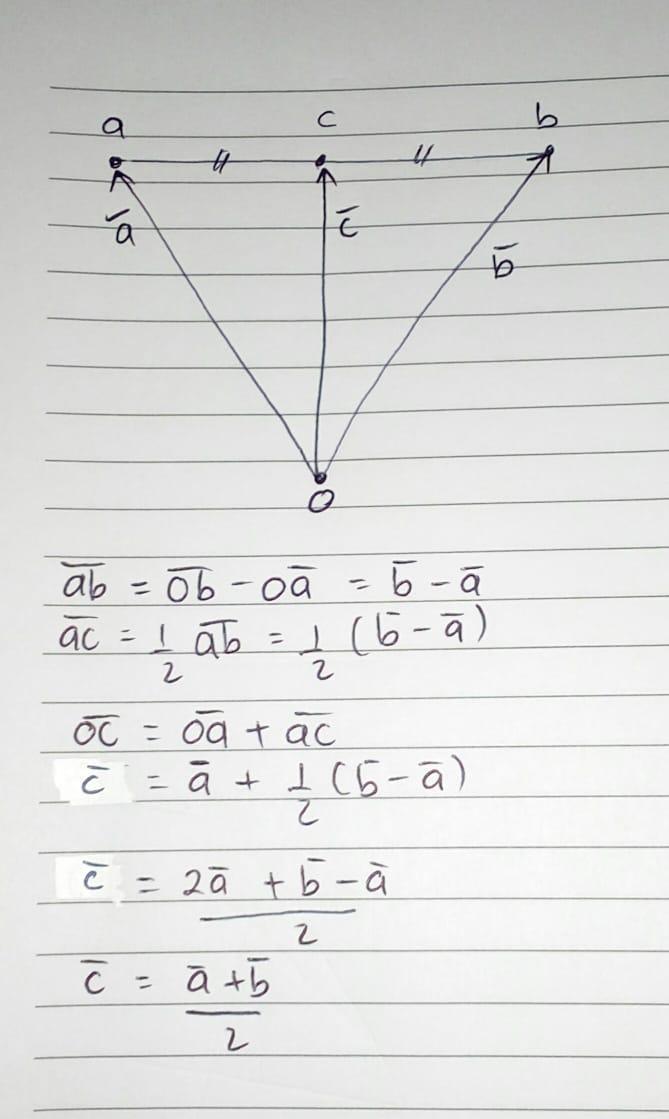 a c b
a̅ c̅
b̅
O
a̅b̅ = O̅b̅ - Oa̅ = b̅ - a̅
a̅c̅ = 1/2 a̅b̅ = 1/2 (b̅ - a̅)
O̅c̅ = O̅a̅ + a̅c̅
c̅ = a̅ + 1/2 (b̅ - a̅)
c̅ = (2a̅ + b̅ - a̅)/2
c̅ = (a̅ + b̅)/2